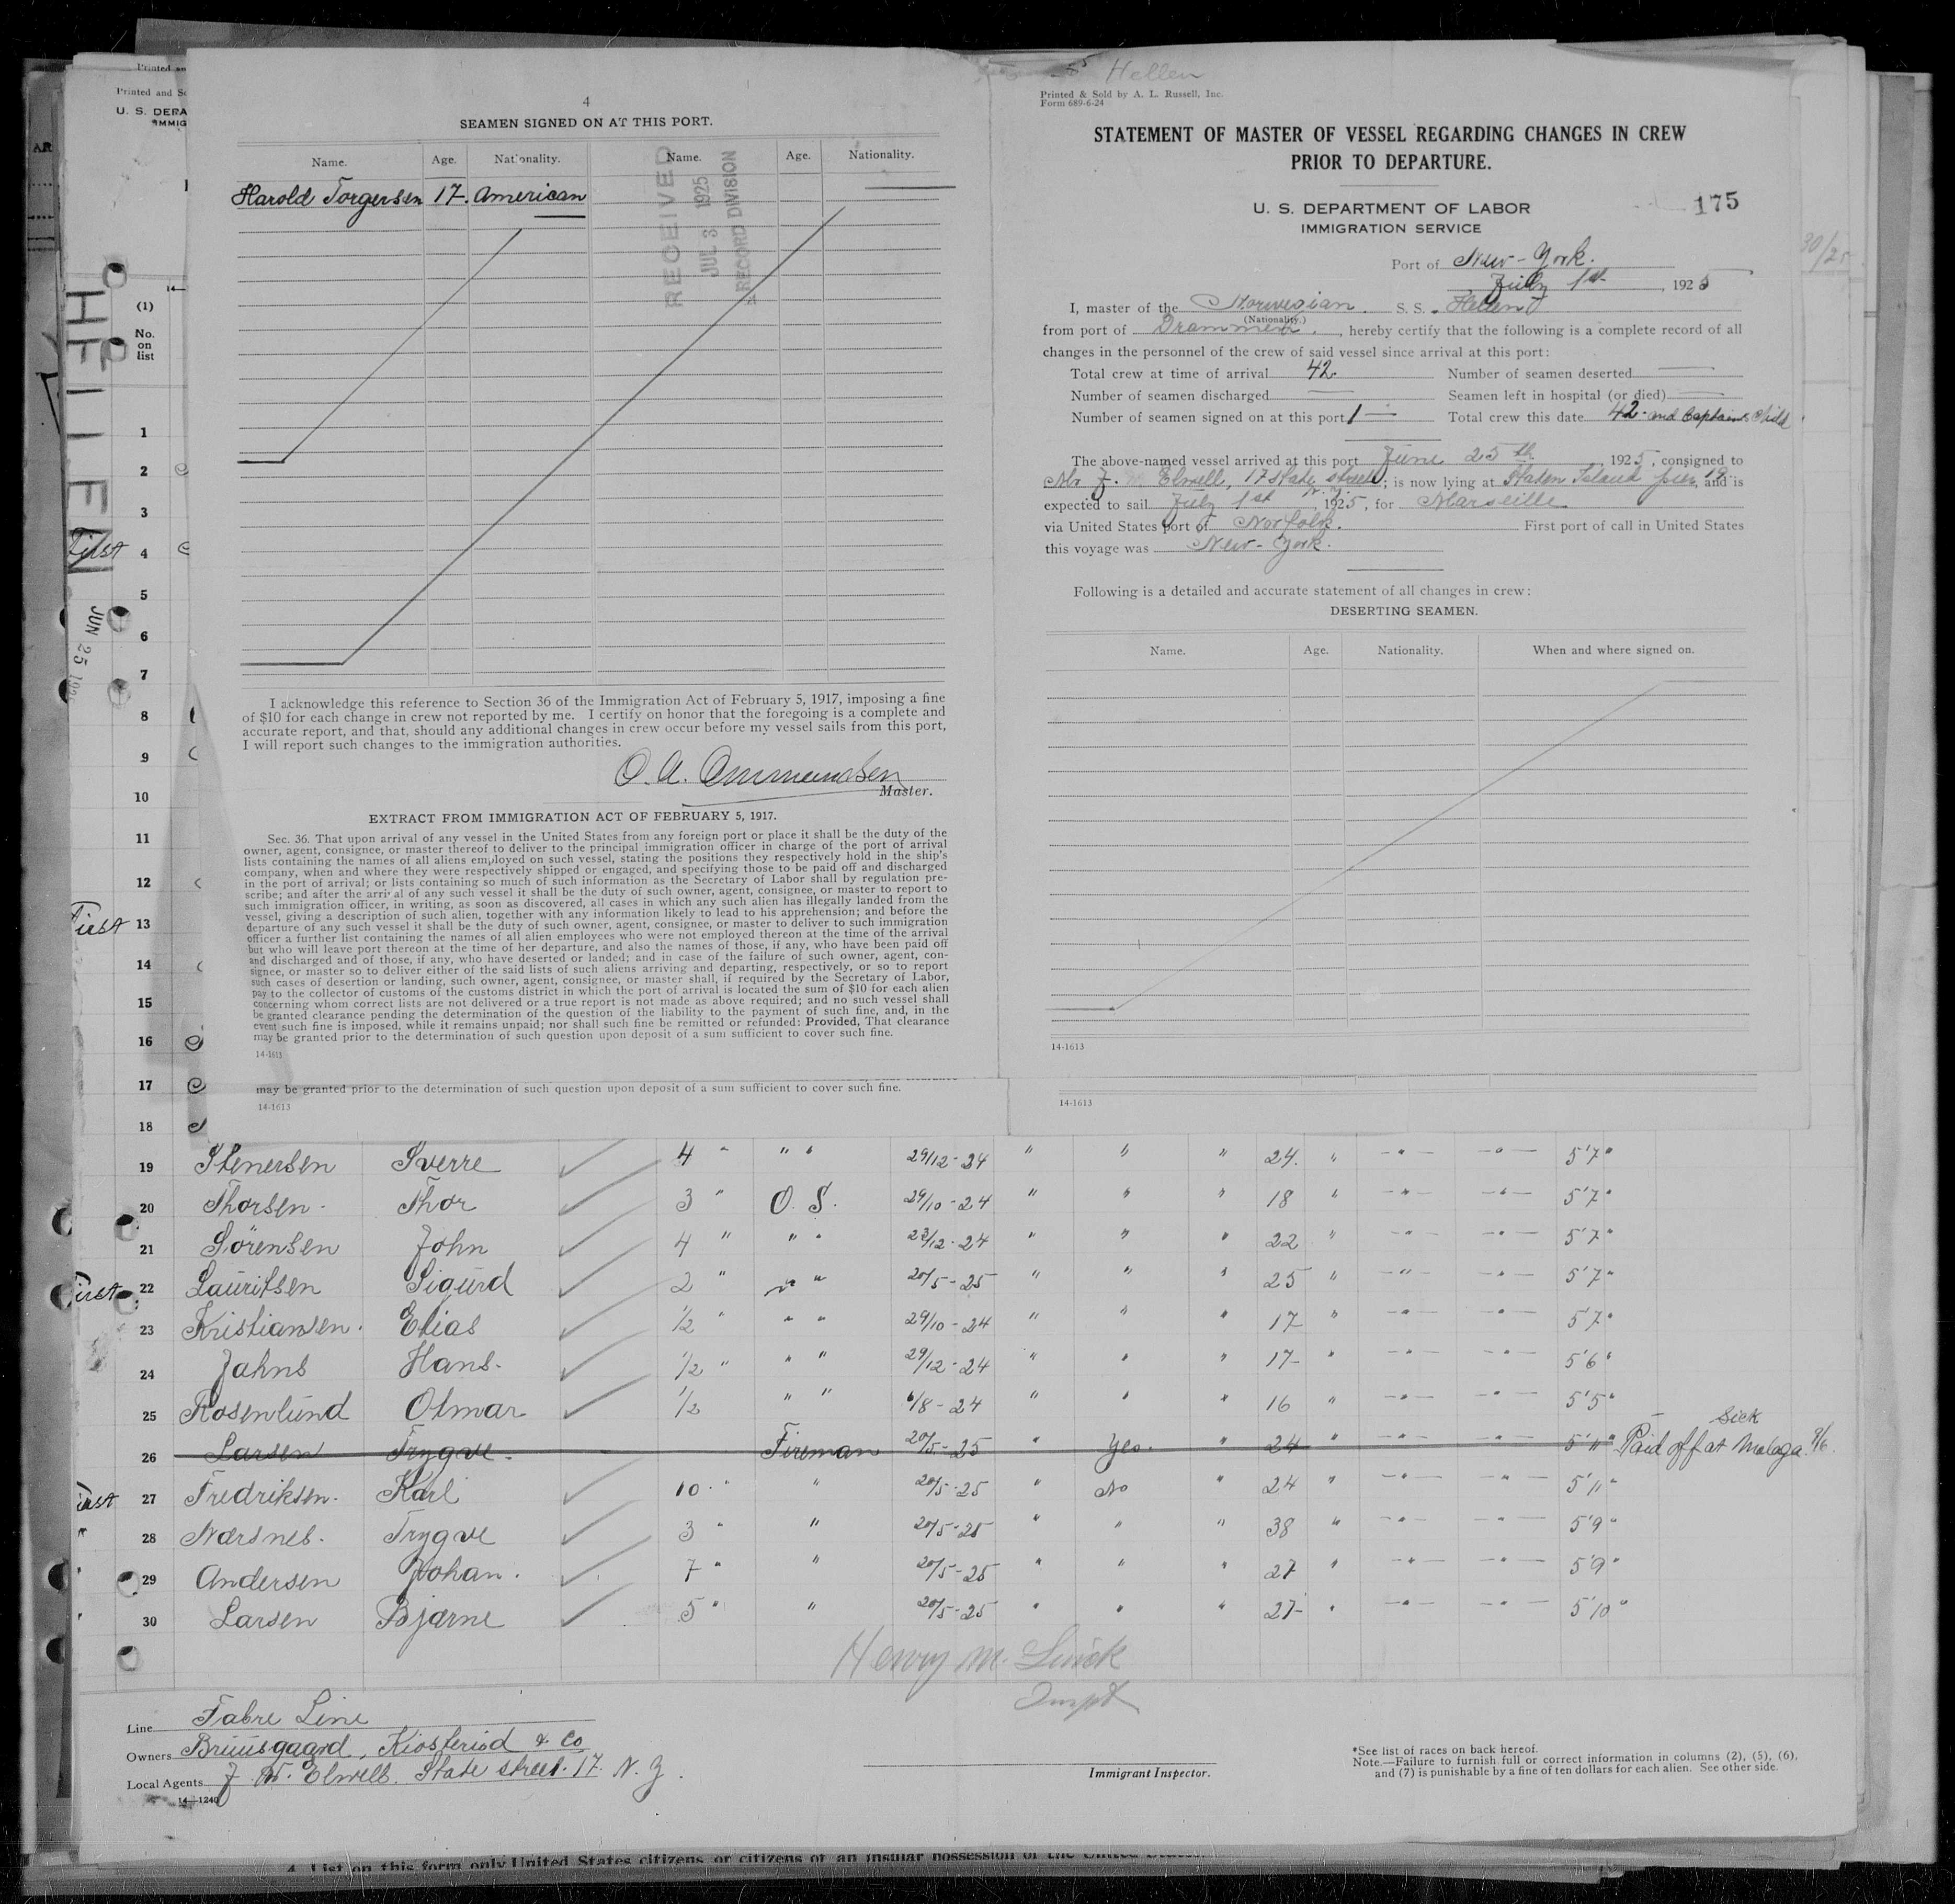 4
SEAMEN SIGNED ON AT THIS PORT.
Name. Age. Nationality. Name. Age. Nationality.
Harold Torgersen 17. American
RECEIVED
JUL 3 1925
RECORD DIVISION
I acknowledge this reference to Section 36 of the Immigration Act of February 5, 1917, imposing a fine
of $10 for each change in crew not reported by me. I certify on honor that the foregoing is a complete and
accurate report, and that, should any additional changes in crew occur before my vessel sails from this port,
I will report such changes to the immigration authorities.
O. A. Ommundsen
Master.
EXTRACT FROM IMMIGRATION ACT OF FEBRUARY 5, 1917.
Sec. 36. That upon arrival of any vessel in the United States from any foreign port or place it shall be the duty of the
owner, agent, consignee, or master thereof to deliver to the principal immigration officer in charge of the port of arrival
lists containing the names of all aliens employed on such vessel, stating the positions they respectively hold in the ship's
company, when and where they were respectively shipped or engaged, and specifying those to be paid off and discharged
in the port of arrival; or lists containing so much of such information as the Secretary of Labor shall by regulation pre-
scribe; and after the arrival of any such vessel it shall be the duty of such owner, agent, consignee, or master to report to
such immigration officer, in writing, as soon as discovered, all cases in which any such alien has illegally landed from the
vessel, giving a description of such alien, together with any information likely to lead to his apprehension; and before the
departure of any such vessel it shall be the duty of such owner, agent, consignee, or master to deliver to such immigration
officer a further list containing the names of all alien employees who were not employed thereon at the time of the arrival
but who will leave port thereon at the time of her departure, and also the names of those, if any, who have been paid off
and discharged and of those, if any, who have deserted or landed; and in case of the failure of such owner, agent, con-
signee, or master so to deliver either of the said lists of such aliens arriving and departing, respectively, or so to report
such cases of desertion or landing, such owner, agent, consignee, or master shall, if required by the Secretary of Labor,
pay to the collector of customs of the customs district in which the port of arrival is located the sum of $10 for each alien
concerning whom correct lists are not delivered or a true report is not made as above required; and no such vessel shall
be granted clearance pending the determination of the question of the liability to the payment of such fine, and, in the
event such fine is imposed, while it remains unpaid; nor shall such fine be remitted or refunded: Provided, That clearance
may be granted prior to the determination of such question upon deposit of a sum sufficient to cover such fine.
14-1613
may be granted prior to the determination of such question upon deposit of a sum sufficient to cover such fine.
14-1613
Hellen
Printed & Sold by A. L. Russell, Inc.
Form 689-6-24
STATEMENT OF MASTER OF VESSEL REGARDING CHANGES IN CREW
PRIOR TO DEPARTURE.
175
U. S. DEPARTMENT OF LABOR
IMMIGRATION SERVICE
Port of New-York.
July 1st, 1925
I, master of the Norwegian. S. S. Hellen
(Nationality.)
from port of Drammen., hereby certify that the following is a complete record of all
changes in the personnel of the crew of said vessel since arrival at this port:
Total crew at time of arrival 42 Number of seamen deserted —
Number of seamen discharged — Seamen left in hospital (or died) —
Number of seamen signed on at this port 1 — Total crew this date 42. and Captains Child
The above-named vessel arrived at this port June 25th, 1925, consigned to
Mr J. W Elwell, 17 State street N.Y.; is now lying at Staten Island pier 19, and is
expected to sail July 1st, 1925, for Marseille
via United States port of Norfolk. First port of call in United States
this voyage was New-York.
Following is a detailed and accurate statement of all changes in crew:
DESERTING SEAMEN.
Name. Age. Nationality. When and where signed on.
14-1613
14-1613
30/25
Printed and So
U. S. DEPA
IMMIG
HELLEN
JUN 25 192
(1)
No.
on
list
1
2
3
First 4
5
6
7
8
9
10
11
12
First 13
14
15
16
17
18
19 Stenersen Sverre 4 " " " 29/12-24 " " " 24. " -"- -"- 5'7"
20 Thorsen. Thor 3 " O. S. 29/10-24 " " " 18 " -"- -"- 5'7"
21 Sörensen John 4 " " " 23/12-24 " " " 22 " -"- -"- 5'7"
First 22 Lauritsen Sigurd 2 " " " 20/5-25 " " " 25 " -"- -"- 5'7"
23 Kristiansen. Elias 1/2 " " " 29/10-24 " " " 17 " -"- -"- 5'7"
24 Jahns Hans. 1/2 " " " 29/12-24 " " " 17 " -"- -"- 5'6"
25 Rosenlund Otmar 1/2 " " 6/8-24 " " " 16 " -"- -"- 5'5"
26 Larsen Trygve. Fireman 20/5-25 " Yes. " 24 " -"- -"- 5'11" Sick Paid off at Malaga 9/6.
First 27 Fredriksen. Karl 10 " " 20/5-25 " No 24 " -"- -"- 5'11"
" 28 Nærsnes. Trygve 3 " " 20/5-25 " " " 38 " -"- -"- 5'9"
29 Andersen Johan. 7 " " 20/5-25 " " " 27 " -"- -"- 5'9"
30 Larsen Bjarne 5 " " 20/5-25 " " " 27 " -"- -"- 5'10"
Henry M.
Inspt
Line Fabre Line
Owners Bruusgaard, Kiosterud & Co
Local Agents J. W. Elwell. State street. 17. N. Y.
14-1240
Immigrant Inspector.
*See list of races on back hereof.
Note.—Failure to furnish full or correct information in columns (2), (5), (6),
and (7) is punishable by a fine of ten dollars for each alien. See other side.
4. List on this form only United States citizens or citizens of an insular possession of the United States.